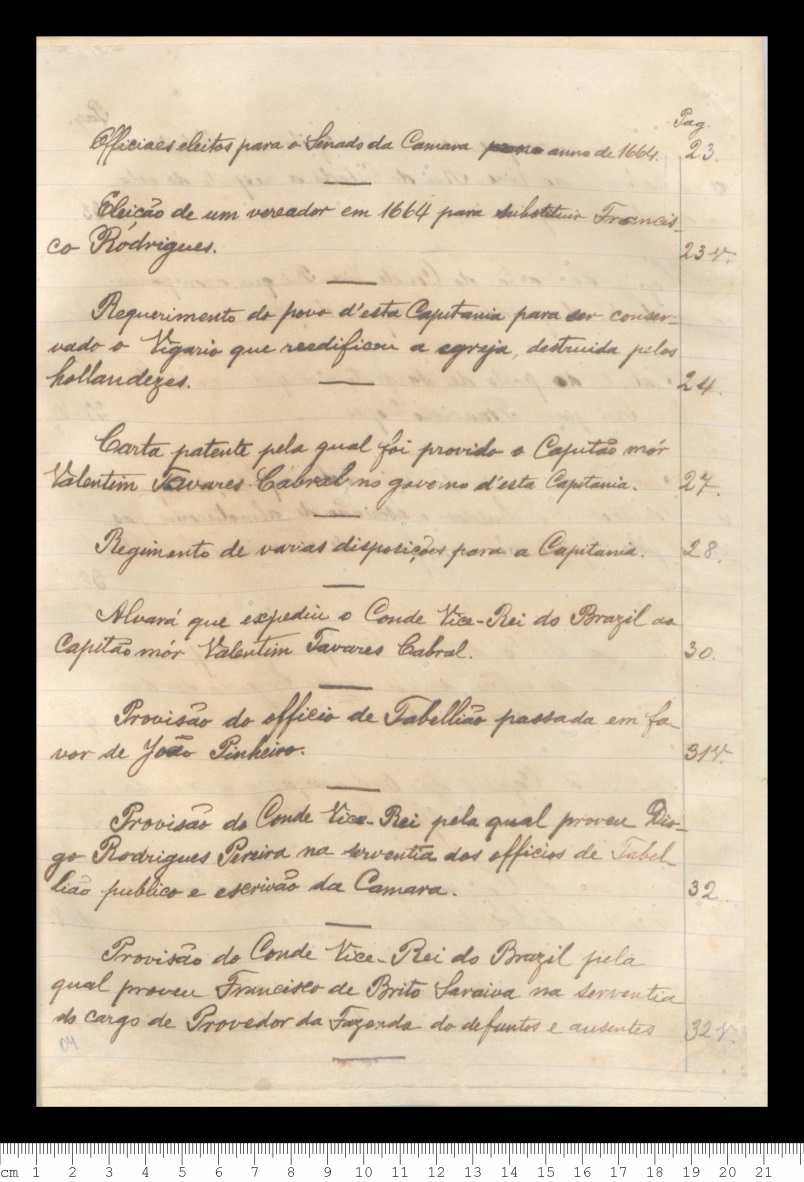 Pag.
Officiaes eleitos para o Senado da Camara anno de 1664. 23.
Eleição de um vereador em 1664 para substituir Francis-
co Rodrigues. 23 V.
Requerimento do povo d'esta Capitania para ser conser-
vado o Vigario que reedificou a egreja, destruida pelos
hollandezes. 24.
Carta patente pela qual foi provido o Capitão mór
Valentim Tavares Cabral no governo d'esta Capitania. 27.
Regimento de varias disposições para a Capitania. 28.
Alvará que expediu o Conde Vice-Rei do Brazil ao
Capitão mór Valentim Tavares Cabral. 30.
Provisão do officio de Tabellião passada em fa-
vor de João Pinheiro. 31 V.
Provisão do Conde Vice-Rei pela qual proveu Dio-
go Rodrigues Pereira na serventia dos officios de Tabel-
lião publico e escrivão da Camara. 32.
Provisão do Conde Vice-Rei do Brazil pela
qual proveu Francisco de Brito Saraiva na serventia
do cargo de Provedor da Fazenda do defuntos e ausentes 32 V.
04
cm 1 2 3 4 5 6 7 8 9 10 11 12 13 14 15 16 17 18 19 20 21